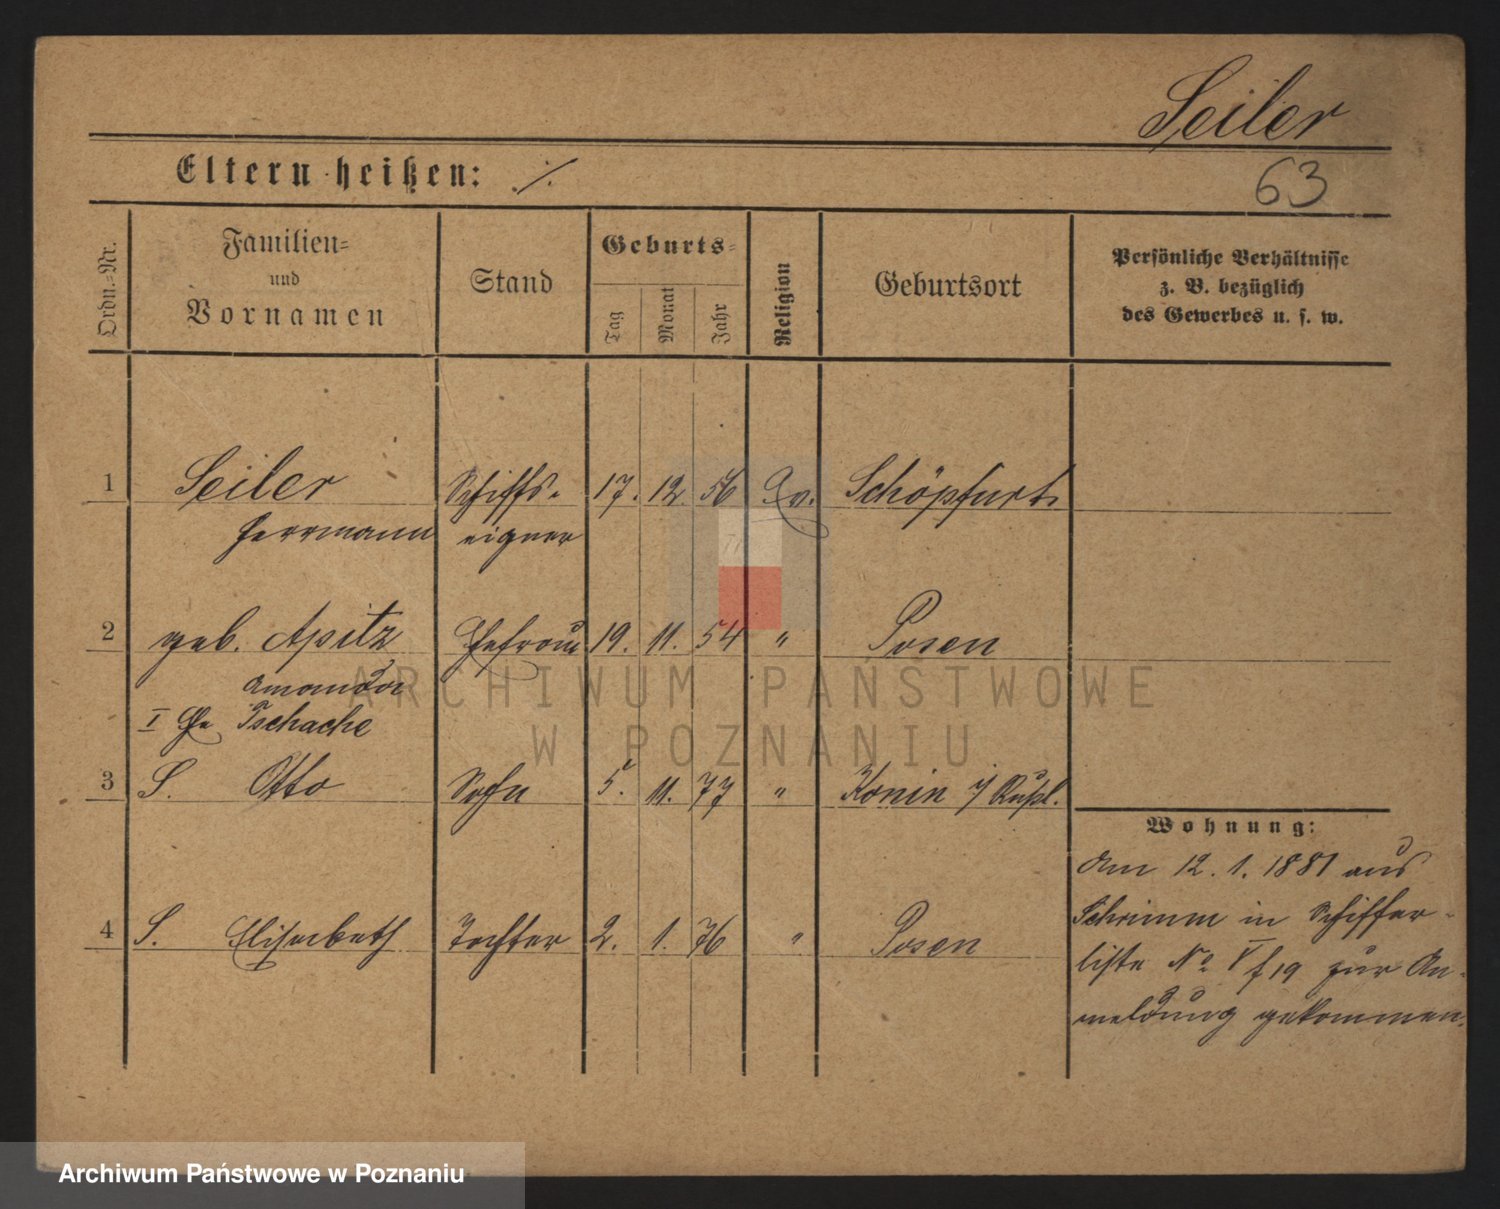 Seiler
Eltern heißen: ./.
63
Ordn.=Nr.
Familien=
und
Vornamen
Stand
Geburts=
Tag
Monat
Jahr
Religion
Geburtsort
Persönliche Verhältnisse
z. B. bezüglich
des Gewerbes u. s. w.
1 Seiler Schiffs- 17. 12. 56 Ev. Schöpfurt
Herrmann eigner
2 geb. Apitz Ehefrau 19. 11. 54 " Posen
Amanda
I Ehe Tschache
3 S. Otto Sohn 5. 11. 77 " Konin i/ Rußl.
Wohnung:
Am 12. 1. 1881 aus
Schrimm in Schiffer-
liste No V f 19 zur An-
meldung gekommen.
4 S. Elisabeth Tochter 2. 1. 76 " Posen
ARCHIWUM PAŃSTWOWE
W POZNANIU
Archiwum Państwowe w Poznaniu